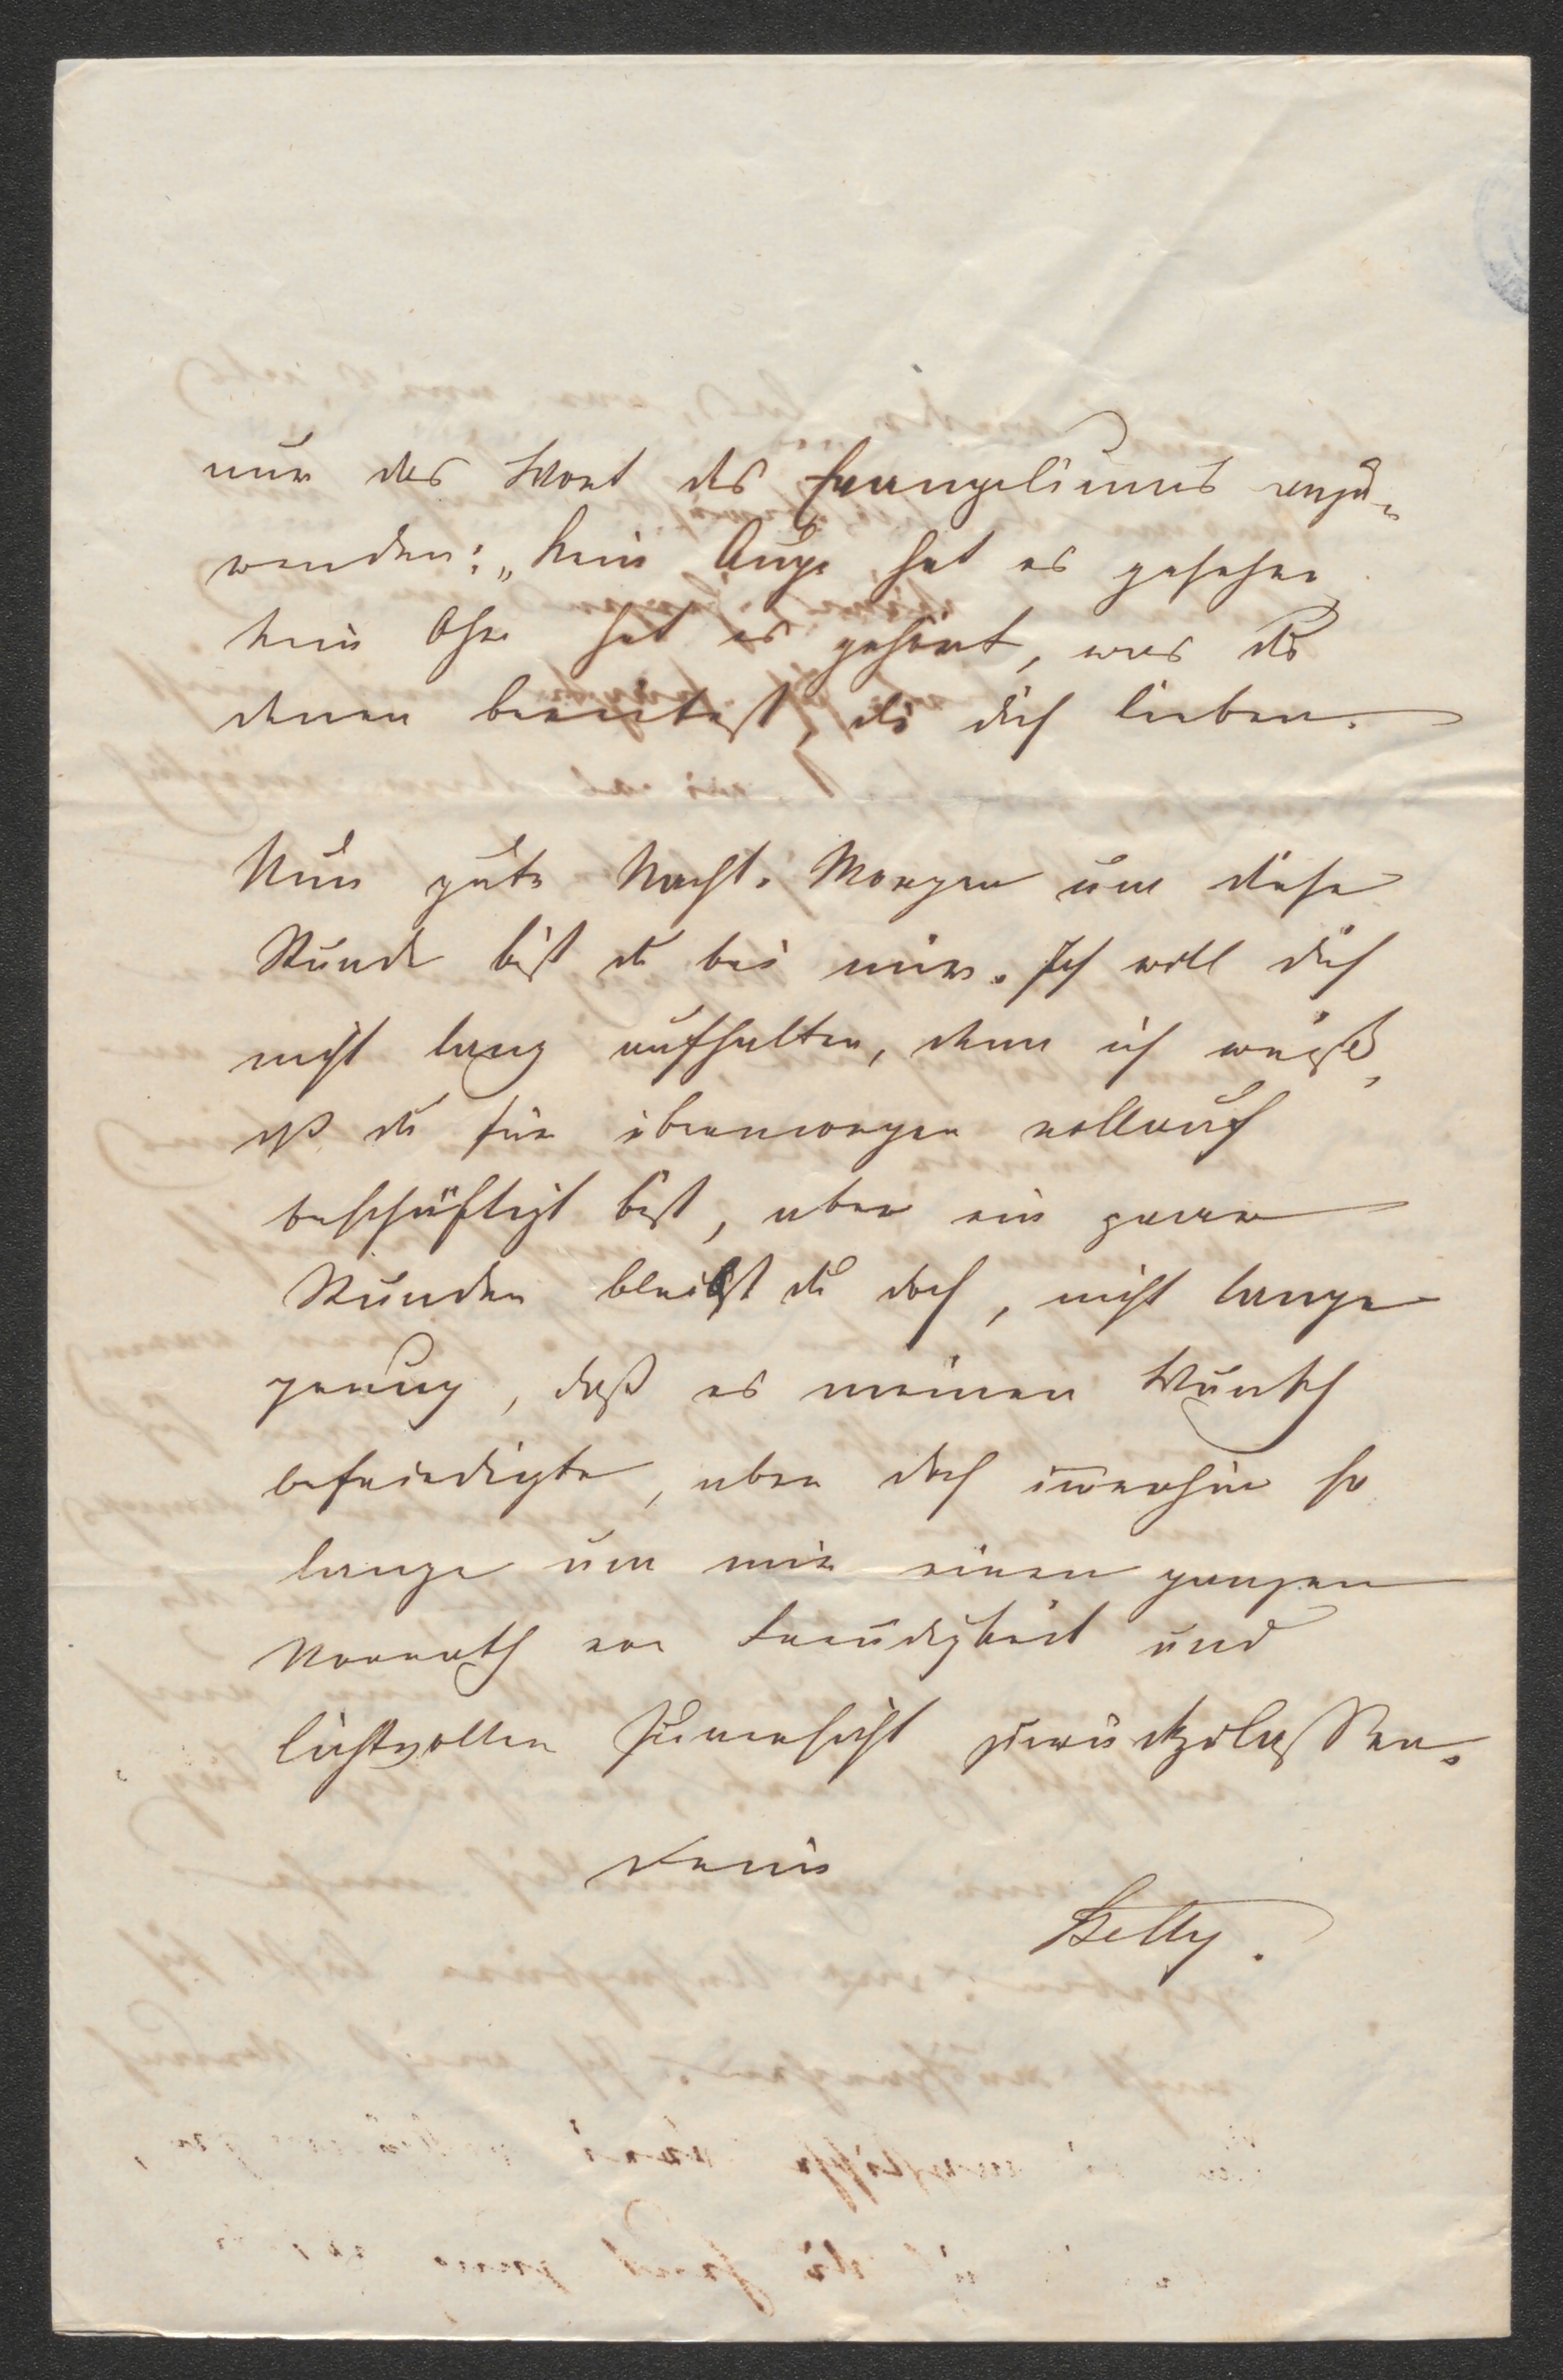 nur das Wort des Evangeliums anzu-
wenden: „Kein Auge hat es gesehen,
kein Ohr hat es gehört, was du
denen bereitest, die dich lieben.
Nun gute Nacht. Morgen um diese
Stunde bist du bei mir. Ich will dich
nicht lang aufhalten, denn ich weiß,
daß du für übermorgen vollauf
beschäftigt bist, aber ein paar
Stunden bleibst du doch, nicht lange
genug, daß es meinen Wunsch
befriedigte, aber doch im̅erhin so
lange um mir einen ganzen
Vorrath von Freudigkeit und
lichtvoller Zuversicht zurückzulassen.
Deine
Betty.